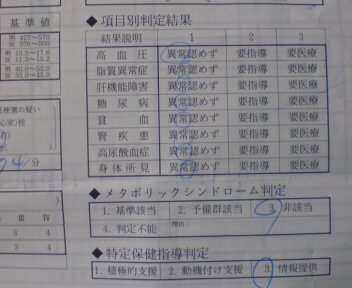 基準値
男 427~570
女 376~500
男 13.5~17.6
女 11.3~15.2
男 40.0~52.0
女 33.0~45.0
梗塞の疑い
心室)性
04/分
III IV
3 4
3 4
◆項目別判定結果
結果説明 1 2 3
高血圧 異常認めず 要指導 要医療
脂質異常症 異常認めず 要指導 要医療
肝機能障害 異常認めず 要指導 要医療
糖尿病 異常認めず 要指導 要医療
貧血 異常認めず 要指導 要医療
腎疾患 異常認めず 要指導 要医療
高尿酸血症 異常認めず 要指導 要医療
身体所見 異常認めず 要指導 要医療
◆メタボリックシンドローム判定
1. 基準該当 2. 予備群該当 3. 非該当
4. 判定不能 理由:
◆特定保健指導判定
1. 積極的支援 2. 動機付け支援 3. 情報提供